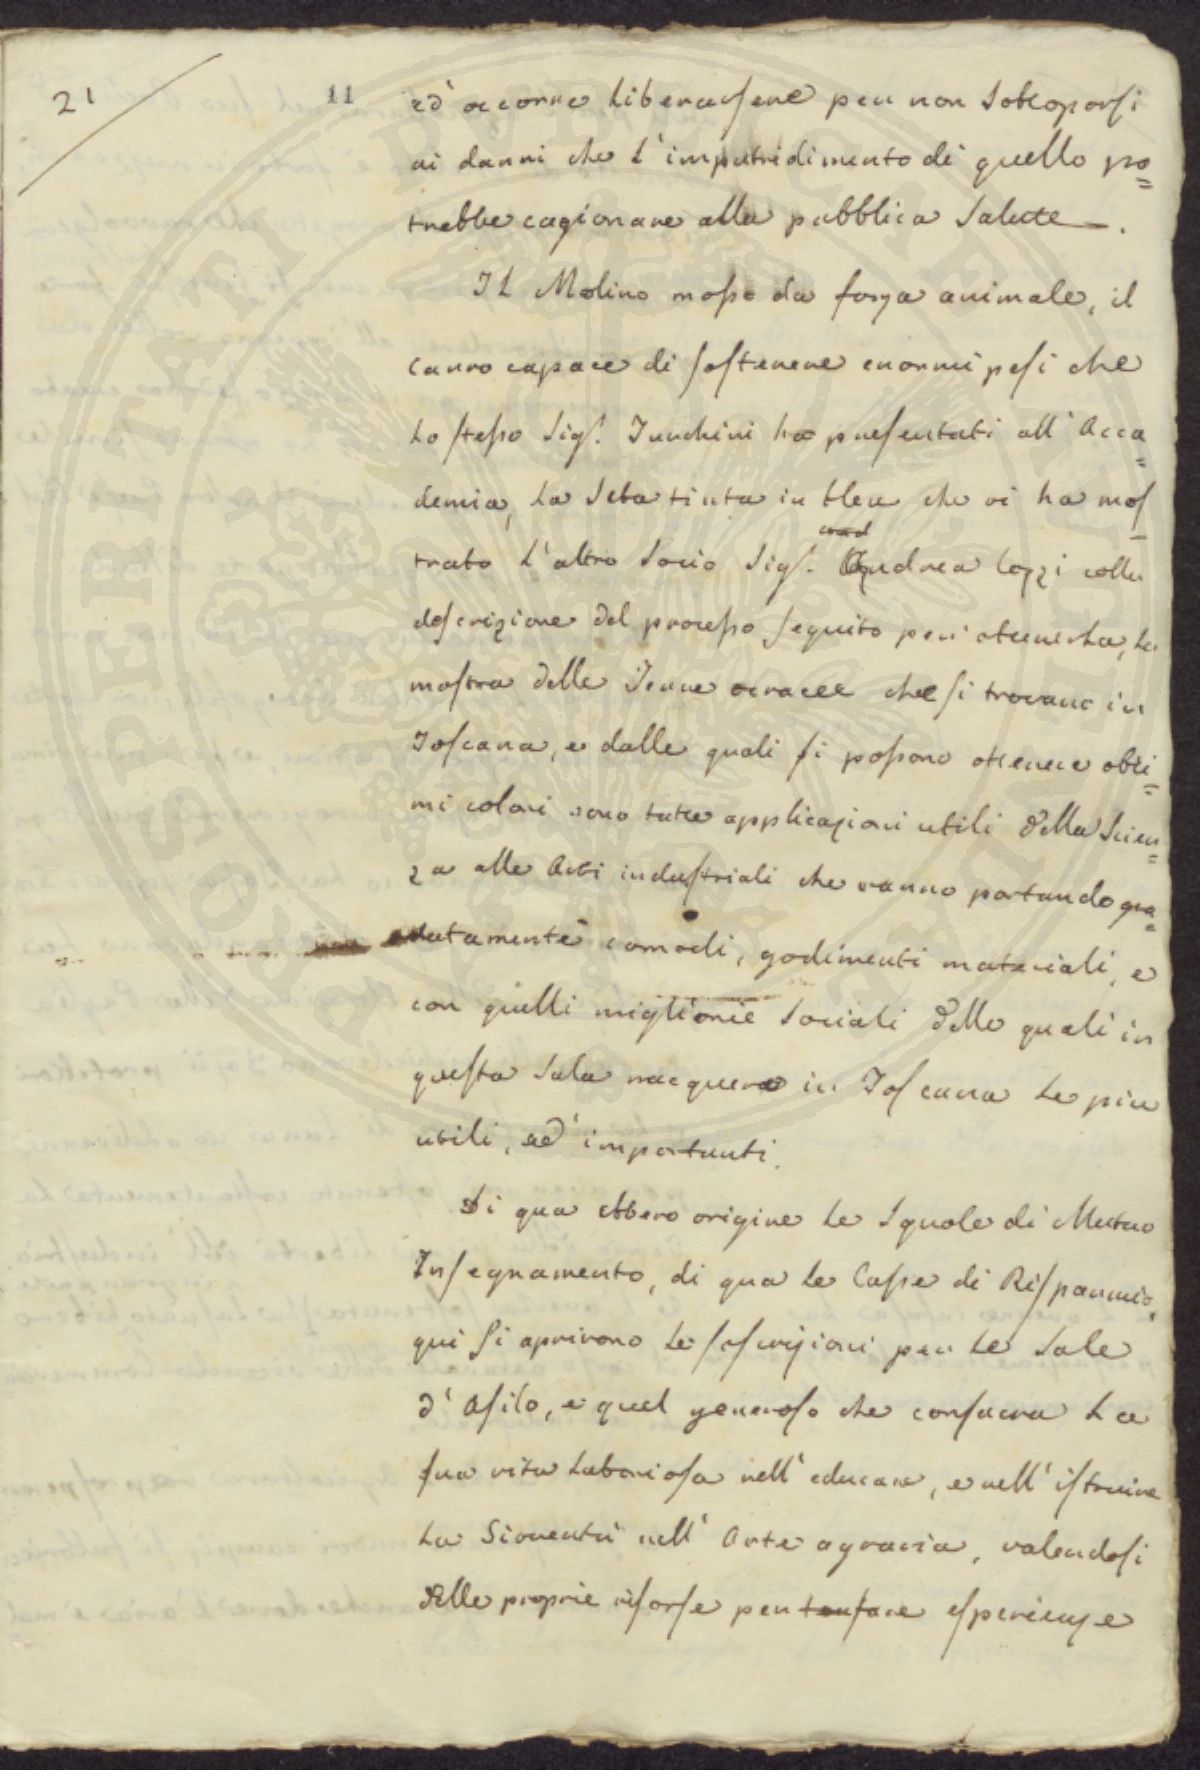 21
11
ed' occorre liberarsene per non sottoporsi
ai danni che l'imputridimento di quello po=
trebbe cagionare alla pubblica salute.
Il Molino mosso da forza animale, il
carro capace di sostenere enormi pesi che
lo stesso Sig.r Turchini ha presentati all'Acca=
demia, la Seta tinta in bleu che vi ha mos=
trato l'altro Socio Sig.r Andrea Cozzi colla
descrizione del processo seguito per ottenerla, la
mostra delle Terre ocracee che si trovano in
Toscana, e dalle quali si possono ottenere otti=
mi colori sono tutte applicazioni utili della Scien=
za alle Arti industriali che vanno portando gra=
datamente comodi, godimenti materiali, e
con quelli migliorie sociali delle quali in
questa Sala nacquero in Toscana le più
utili, ed' importanti.
Di qua ebbero origine le Squole di Mutuo
Insegnamento, di qua le Casse di Risparmio,
qui si aprirono le scrizioni per le Sale
d'Asilo, e quel generoso che consacra la
sua vita laboriosa nell'educare, e nell'istruire
la Gioventù nell'Arte agraria, valendosi
delle proprie risorse per tentare esperienze